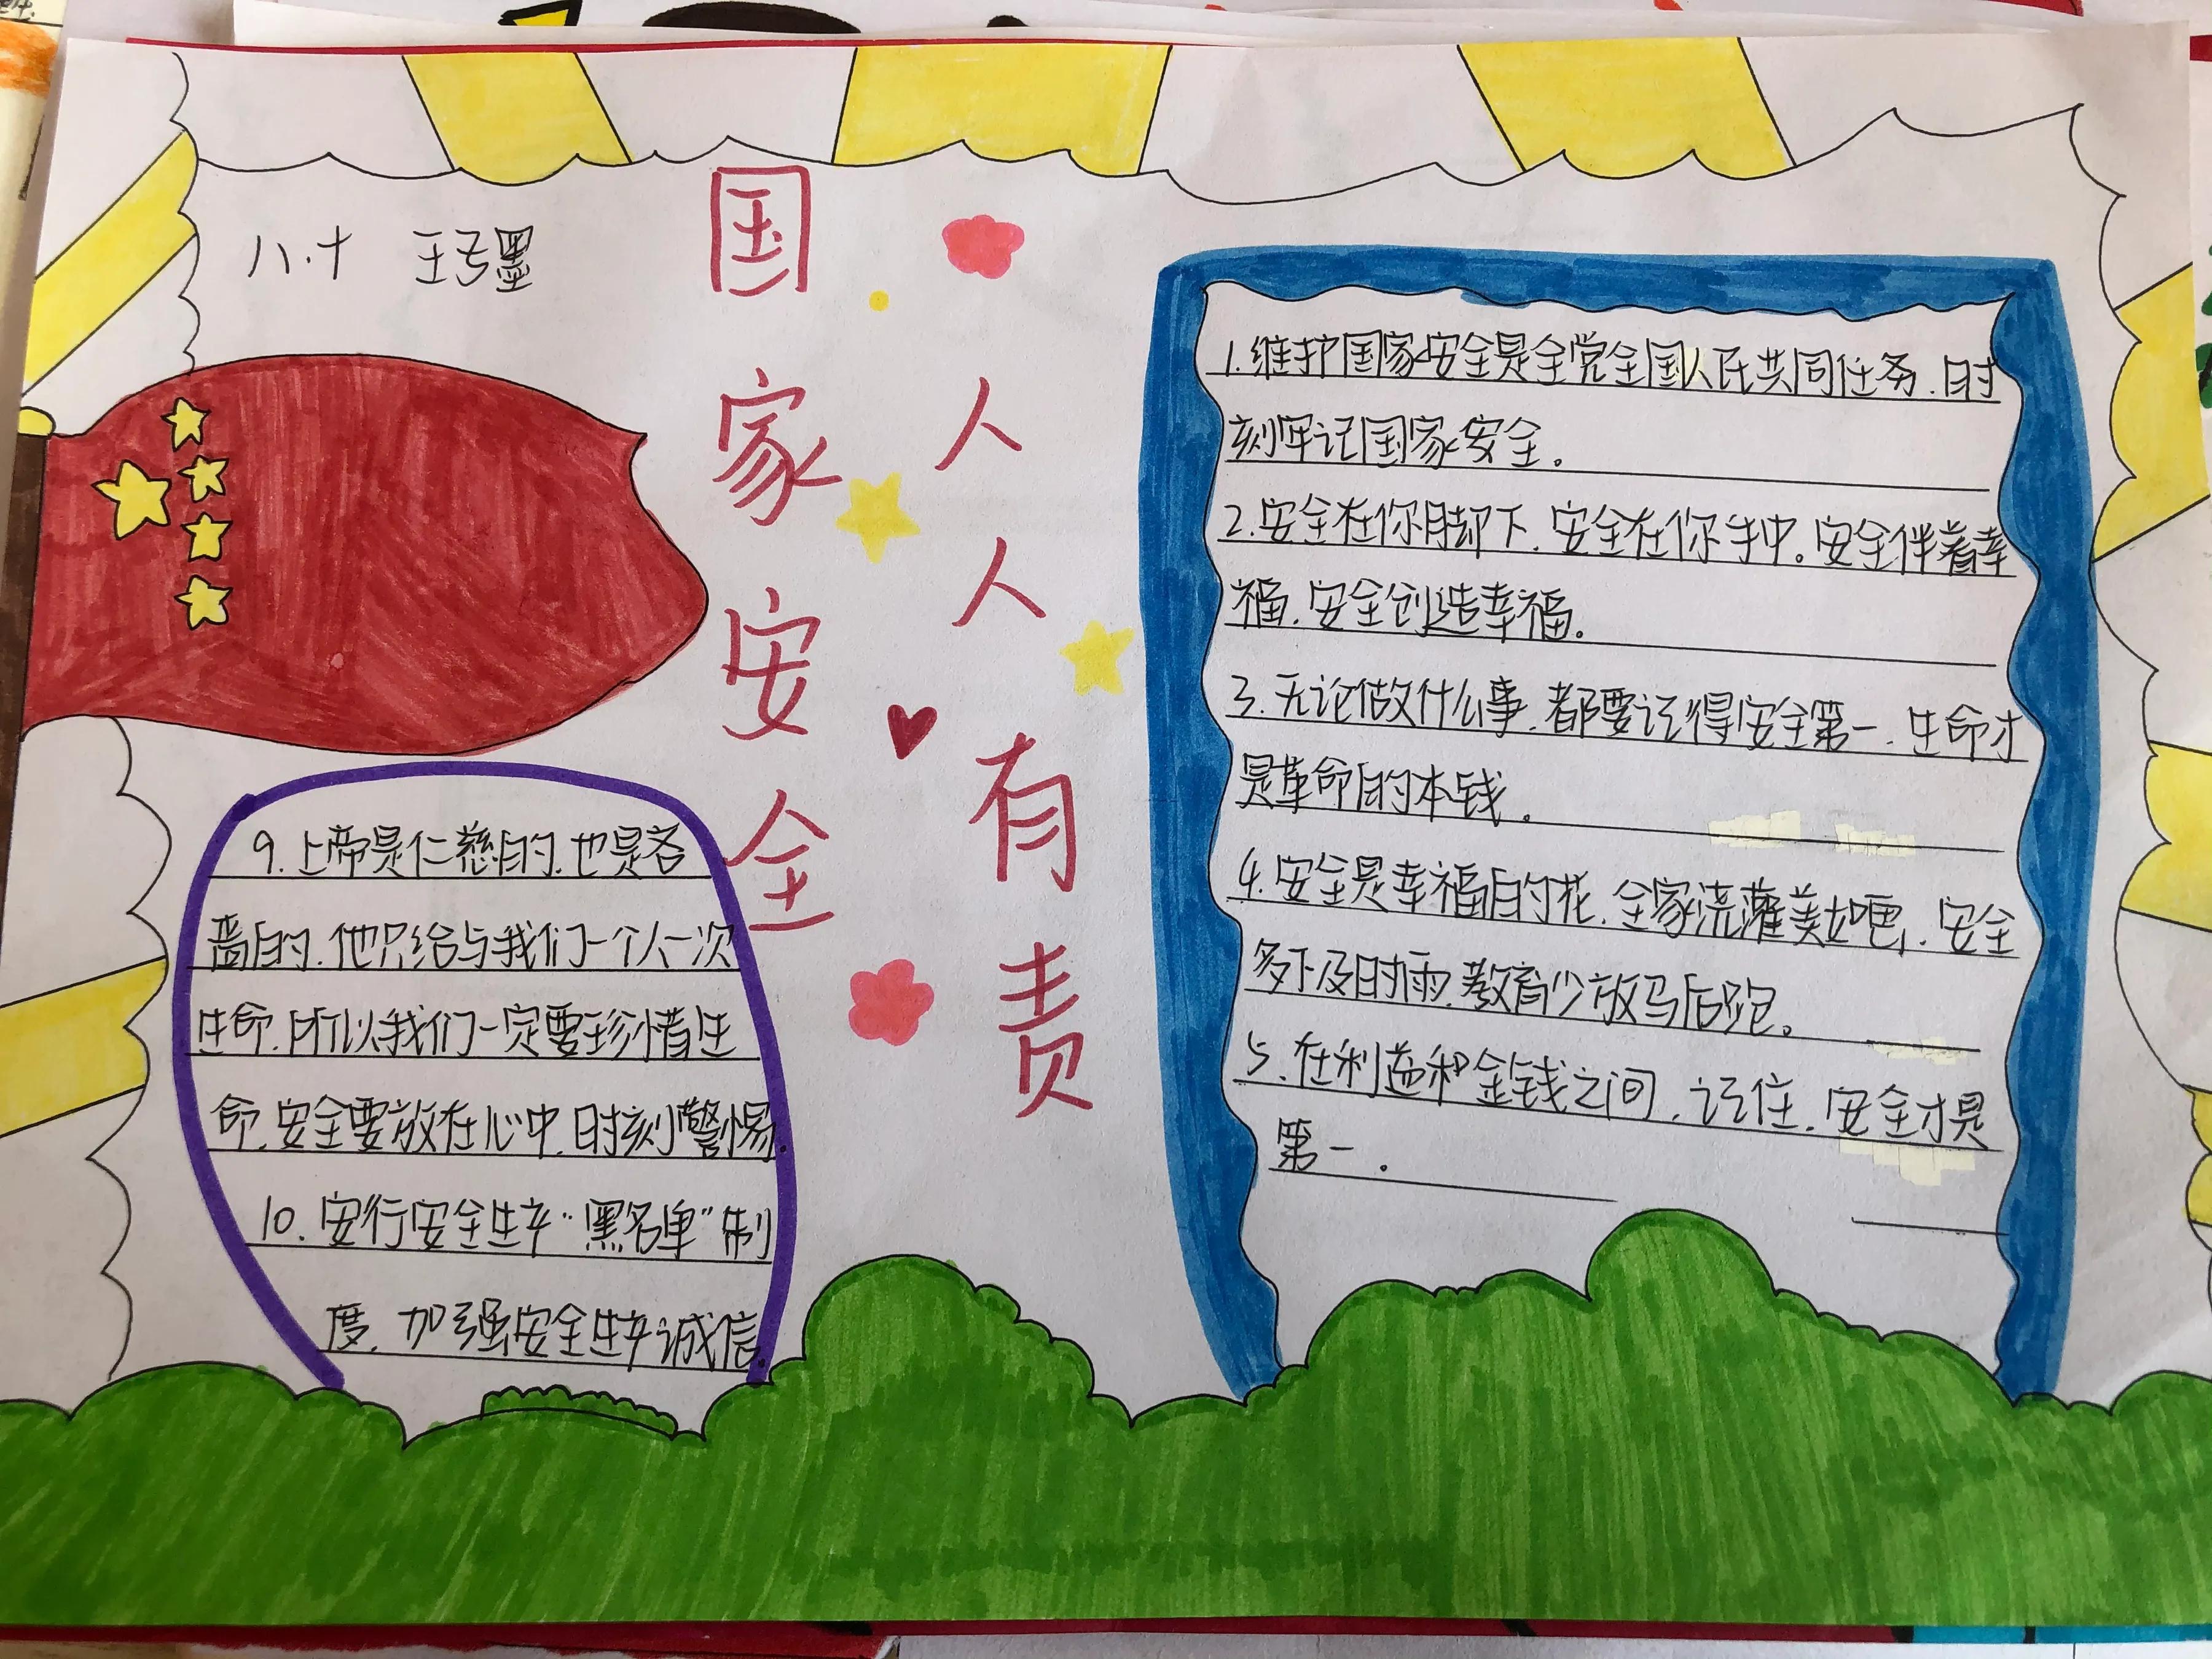 八.十 王弓墨
国家安全
人人有责
1.维护国家安全是全党全国人民共同任务.时
刻牢记国家安全。
2.安全在你脚下.安全在你手中。安全伴着幸
福.安全创造幸福。
3.无论做什么事.都要记得安全第一.生命才
是革命的本钱.
4.安全是幸福的花.全家浇灌美如画.安全
多下及时雨.教育少放马后跑。
5.在利益和金钱之间.记住.安全才是
第一.
9.上帝是仁慈的.也是吝
啬的.他只给与我们一个人一次
生命.所以我们一定要珍惜生
命.安全要放在心中.时刻警惕.
10.安行安全生产“黑名单”制
度.加强安全生产诚信.